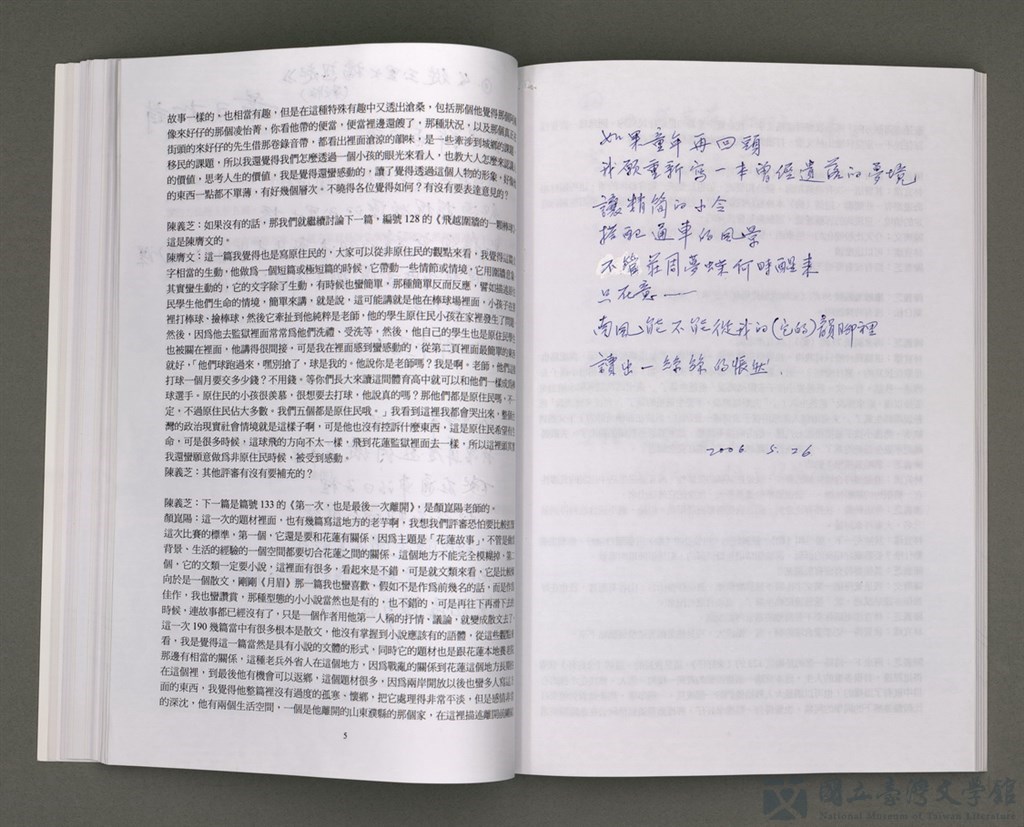 故事一樣的。也相當有趣，但是在這種特殊有趣中又透出滄桑，包括那個他覺得那個
像來好仔的那個凌治菁，你看他帶的便當，便當裡邊還餿了，那種狀況，以及那個真正
街頭的來好仔的先生借那卷錄音帶，都看出裡面滄涼的韻味，是一些牽涉到城鄉的課題
移民的課題，所以我還覺得我們怎麼透過一個小孩的眼光來看人，也教大人怎麼來認識
的價值，思考人生的價值，我是覺得還蠻感動的，讀了覺得透過這個人物的形象，好像
的東西一點都不單薄，有好幾個層次。不曉得各位覺得如何？有沒有要表達意見的？
陳義芝：如果沒有的話，那我們就繼續討論下一篇，編號 128 的《飛越圍牆的一顆棒球》
這是陳膺文的。
陳膺文：這一篇我覺得也是寫原住民的，大家可以從非原住民的觀點來看，我覺得這篇
字相當的生動，他做為一個短篇或極短篇的時候，它帶動一些情節或情境，它用圍牆
其實蠻生動的，它的文字除了生動，有時候也蠻簡單，那種簡單反而反應，譬如描述
民學生他們生命的情境，簡單來講，就是說，這可能講就是他在棒球場裡面，小孩子在
裡打棒球、撿棒球，然後它牽扯到他純粹是老師，他的學生原住民小孩在家裡發生了問題
然後，因為他去監獄裡面常常為他們洗禮、受洗等，然後，他自己的學生也是原住民
也被關在裡面，他講得很間接，可是我在裡面感到蠻感動的，從第二頁裡面最簡單的
就好，「他們球跑過來，嘿別搶了，球是我的。他說你是老師嗎？我是啊。老師，他們
打球一個月要交多少錢？不用錢。等你們長大來讀這間體育高中就可以和他們一樣成為
球選手。原住民的小孩很羨慕，很想要去打球，他說真的嗎？那他們都是原住民嗎，不一
定，不過原住民佔大多數。我們五個都是原住民哦。」我看到這裡我都會哭出來，整個
灣的政治現實社會情境就是這樣子啊，可是他也沒有控訴什麼東西，這是原住民希望
命，可是很多時候，這球飛的方向不太一樣，飛到花蓮監獄裡面去一樣，所以這裡頭
我還蠻願意做為非原住民時候，被受到感動。
陳義芝：其他評審有沒有要補充的？
陳義芝：下一篇是篇號 133 的《第一次，也是最後一次離開》，是顏崑陽老師的。
顏崑陽：這一次的題材裡面，也有幾篇寫這地方的老芋啊，我想我們評審恐怕要比較
這次比賽的標準，第一個，它還是要和花蓮有關係，因為主題是「花蓮故事」，不管是
背景、生活的經驗的一個空間都要切合花蓮之間的關係，這個地方不能完全模糊掉，第二
個，它的文類一定要小說，這裡面有很多，看起來是不錯，可是就文類來看，它是比較
向於是一個散文，剛剛《月眉》那一篇我也蠻喜歡，假如不是作為前幾名的話，而是作為
佳作，我也蠻讚賞，那種型態的小小說當然也是有的，也不錯的，可是再往下再滑下去
時候，連故事都已經沒有了，只是一個作者用他第一人稱的抒情、議論，就變成散文去了
這一次 190 幾篇當中有很多根本是散文，他沒有掌握到小說應該有的語體，從這些觀點來
看，我是覺得這一篇當然是具有小說的文體的形式，同時它的題材也是跟花蓮本地
那邊有相當的關係，這種老兵外省人在這個地方，因為戰亂的關係到花蓮這個地方長期
在這個裡，到最後他有機會可以返鄉，這個題材很多，因為兩岸開放以後也蠻多人寫這方
面的東西，我覺得他整篇裡沒有過度的孤寒、懷鄉，把它處理得非常平淡，但是感情非常
的深沈，他有兩個生活空間，一個是他離開的山東濮縣的那個家，在這裡描述離開
5
如果童年再回頭
我願重新寫一本曾經遺落的夢境
讓精簡的小令
搭配通車的風景
不管莊周夢蝶何時醒來
只在意——
南風能不能從我的(它的)韻腳裡
讀出一絲絲的悵然.
2006 5. 26
國立臺灣文學館
National Museum of Taiwan Literature